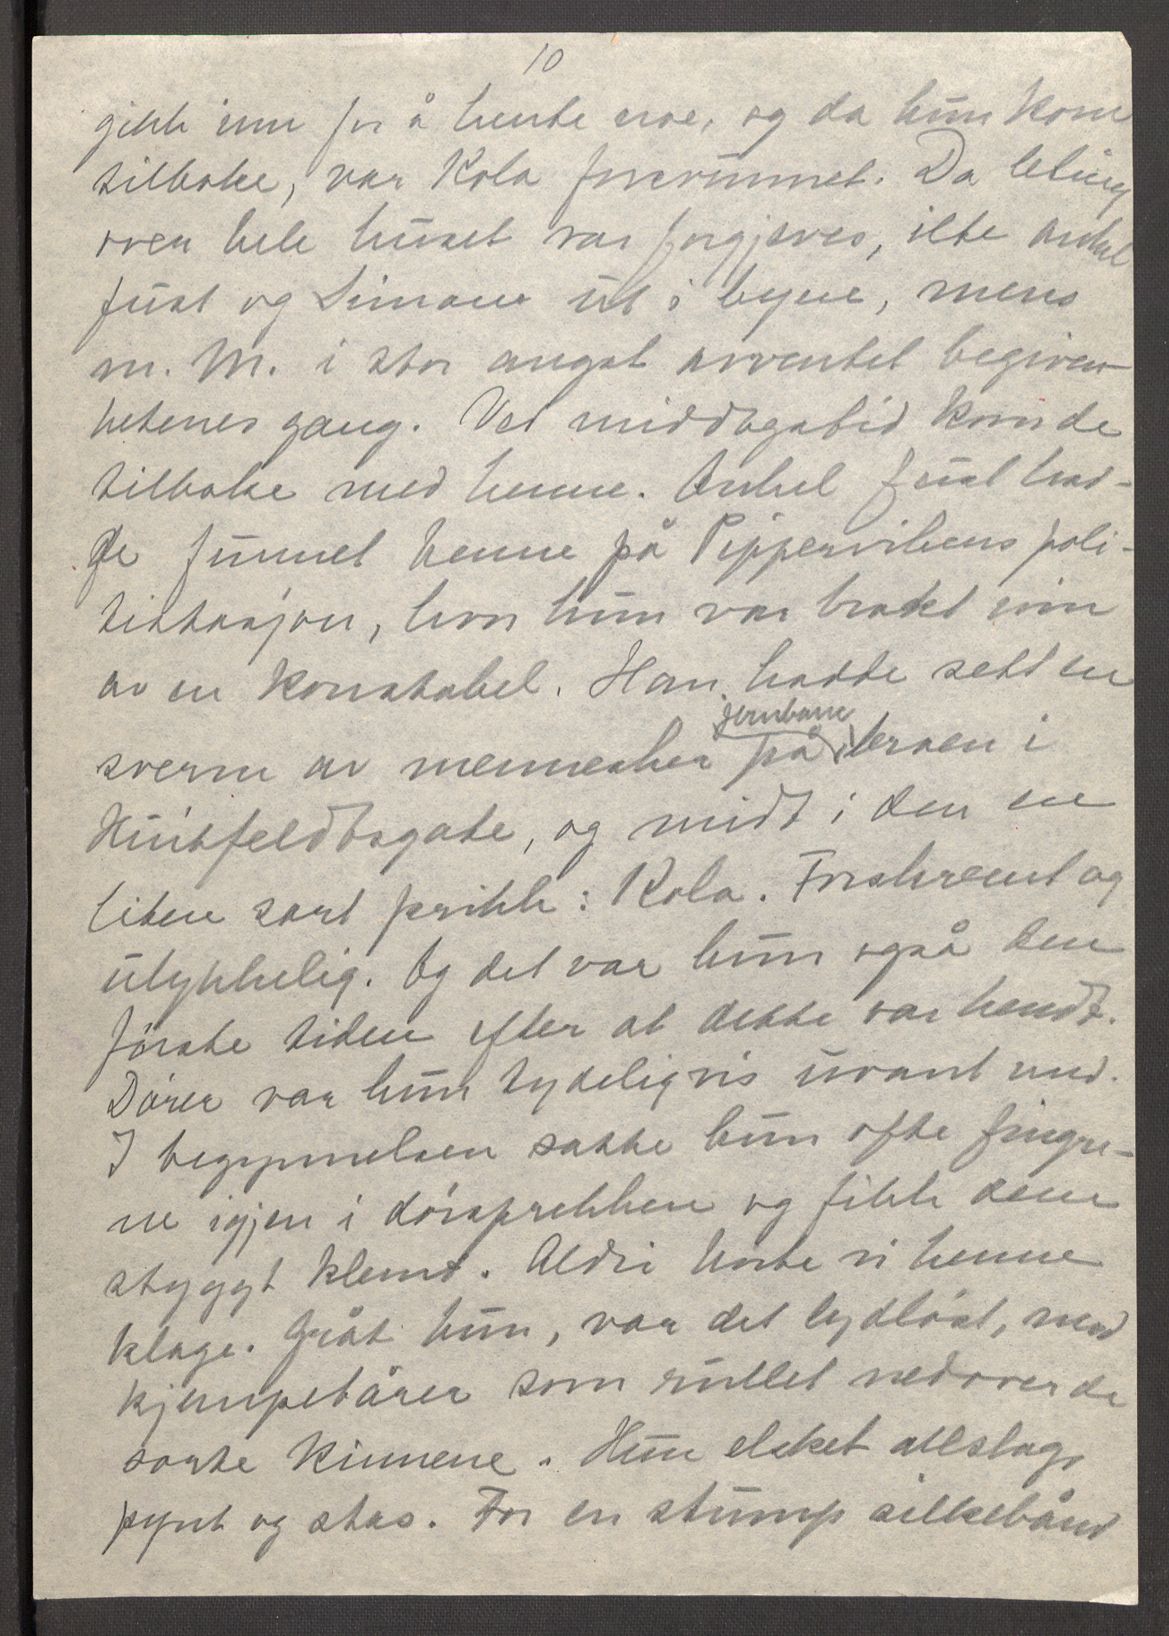 10
gikk inn for å hente noe, og da hun kom
tilbake, var Kola forsvunnet. Da leting
over hele huset var forgjeves, ilte onkel
Just og Simone ut i byen, mens
m. M. i stor angst avventet begiven-
hetenes gang. Ved middagstid kom de
tilbake med henne. Onkel Just had-
de funnet henne på Pippervikens poli-
tistasjon, hvor hun var brakt inn
av en konstabel. Han hadde sett en
jernbane
sverm av mennesker på broen i
Huitfeldtsgate, og midt i den en
liten sort prikk: Kola. Forskremt og
ulykkelig. Og det var hun også den
første tiden efter at dette var hendt.
Dører var hun tydeligvis uvant med.
I begynnelsen satte hun ofte fingre-
ne igjen i dørsprekken og fikk dem
styggt klemt. Aldri hørte vi henne
klage. Gråt hun, var det lydløst, med
kjempetårer som rullet nedover de
sorte kinnene. Hun elsket allslags
pynt og stas. For en stump silkebånd